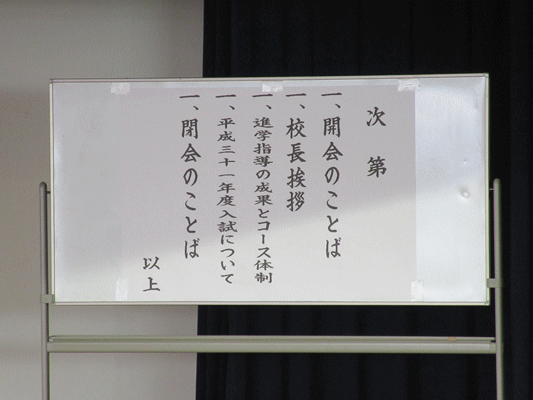 次第
一、開会のことば
一、校長挨拶
一、進学指導の成果とコース体制
一、平成三十一年度入試について
一、閉会のことば
以上